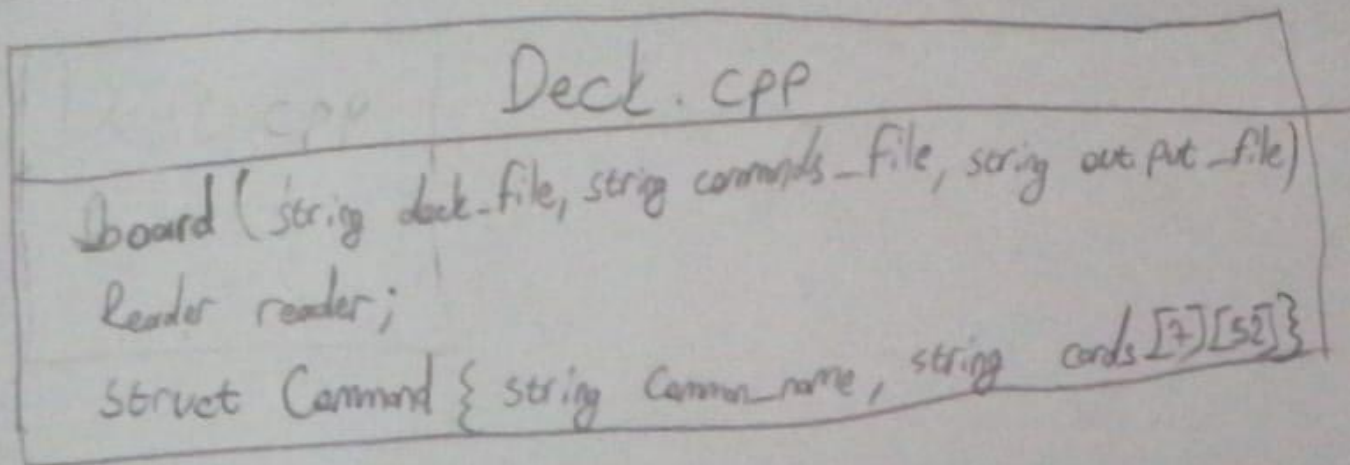 Deck.cpp
board (string deck_file, string commands_file, string out put_file)
Reader reader;
struct Command { string Common_name, string cards [7][52]}